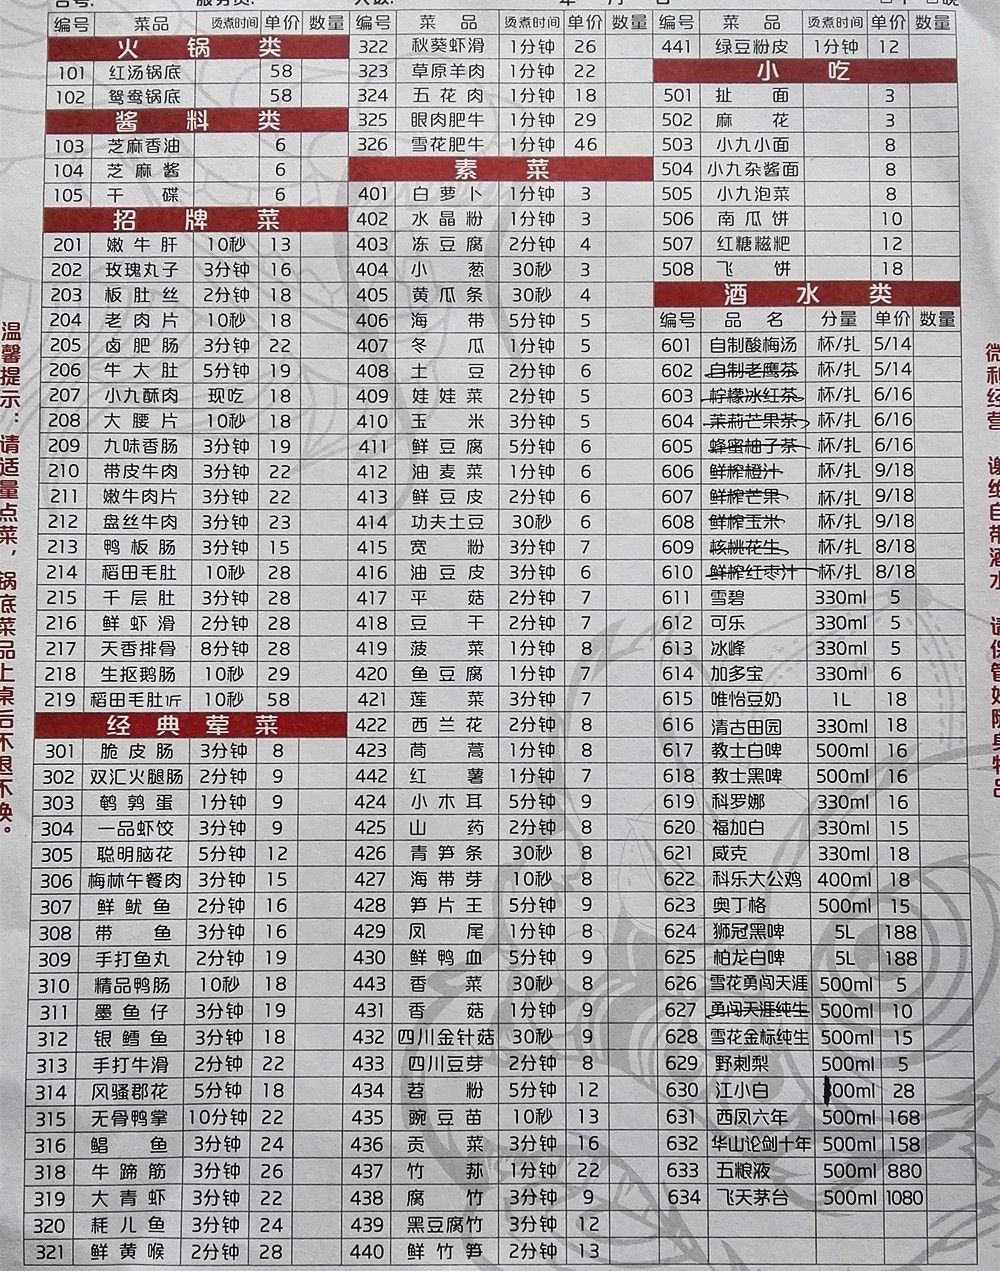 编号 菜品 烫煮时间 单价 数量
火锅类
101 红汤锅底 58
102 鸳鸯锅底 58
酱料类
103 芝麻香油 6
104 芝麻酱 6
105 干碟 6
招牌菜
201 嫩牛肝 10秒 13
202 玫瑰丸子 3分钟 16
203 板肚丝 2分钟 18
204 老肉片 10秒 18
205 卤肥肠 3分钟 22
206 牛大肚 5分钟 19
207 小九酥肉 现吃 18
208 大腰片 10秒 18
209 九味香肠 3分钟 19
210 带皮牛肉 3分钟 22
211 嫩牛肉片 3分钟 22
212 盘丝牛肉 3分钟 23
213 鸭板肠 3分钟 15
214 稻田毛肚 10秒 28
215 千层肚 3分钟 28
216 鲜虾滑 2分钟 28
217 天香排骨 8分钟 28
218 生抠鹅肠 10秒 29
219 稻田毛肚 10秒 58
经典荤菜
301 脆皮肠 3分钟 8
302 双汇火腿肠 2分钟 9
303 鹌鹑蛋 1分钟 9
304 一品虾饺 3分钟 9
305 聪明脑花 5分钟 12
306 梅林午餐肉 3分钟 15
307 鲜鱿鱼 2分钟 16
308 带鱼 3分钟 16
309 手打鱼丸 2分钟 19
310 精品鸭肠 10秒 18
311 墨鱼仔 3分钟 19
312 银鳕鱼 3分钟 18
313 手打牛滑 2分钟 22
314 风骚郡花 5分钟 18
315 无骨鸭掌 10分钟 22
316 鲳鱼 3分钟 24
318 牛蹄筋 3分钟 26
319 大青虾 3分钟 22
320 耗儿鱼 3分钟 24
321 鲜黄喉 2分钟 28
编号 菜品 烫煮时间 单价 数量
322 秋葵虾滑 1分钟 26
323 草原羊肉 1分钟 22
324 五花肉 1分钟 18
325 眼肉肥牛 1分钟 29
326 雪花肥牛 1分钟 46
素菜
401 白萝卜 1分钟 3
402 水晶粉 1分钟 3
403 冻豆腐 2分钟 4
404 小葱 30秒 3
405 黄瓜条 30秒 4
406 海带 5分钟 5
407 冬瓜 1分钟 5
408 土豆 2分钟 6
409 娃娃菜 2分钟 5
410 玉米 3分钟 5
411 鲜豆腐 5分钟 6
412 油麦菜 1分钟 6
413 鲜豆皮 2分钟 6
414 功夫土豆 30秒 6
415 宽粉 3分钟 7
416 油豆皮 3分钟 6
417 平菇 2分钟 7
418 豆干 2分钟 7
419 菠菜 1分钟 8
420 鱼豆腐 1分钟 7
421 莲菜 3分钟 7
422 西兰花 2分钟 8
423 茼蒿 1分钟 8
442 红薯 1分钟 7
424 小木耳 5分钟 9
425 山药 2分钟 8
426 青笋条 30秒 8
427 海带芽 10秒 8
428 笋片王 5分钟 9
429 凤尾 1分钟 8
430 鲜鸭血 5分钟 9
443 香菜 30秒 8
431 香菇 1分钟 9
432 四川金针菇 30秒 9
433 四川豆芽 2分钟 8
434 苕粉 5分钟 12
435 豌豆苗 10秒 13
436 贡菜 3分钟 16
437 竹荪 1分钟 22
438 腐竹 3分钟 9
439 黑豆腐竹 3分钟 12
440 鲜竹笋 2分钟 13
编号 菜品 烫煮时间 单价 数量
441 绿豆粉皮 1分钟 12
小吃
501 扯面 3
502 麻花 3
503 小九小面 8
504 小九杂酱面 8
505 小九泡菜 8
506 南瓜饼 10
507 红糖糍粑 12
508 飞饼 18
酒水类
编号 品名 分量 单价 数量
601 自制酸梅汤 杯/扎 5/14
602 自制老鹰茶 杯/扎 5/14
603 柠檬冰红茶 杯/扎 6/16
604 茉莉芒果茶 杯/扎 6/16
605 蜂蜜柚子茶 杯/扎 6/16
606 鲜榨橙汁 杯/扎 9/18
607 鲜榨芒果 杯/扎 9/18
608 鲜榨玉米 杯/扎 9/18
609 核桃花生 杯/扎 8/18
610 鲜榨红枣汁 杯/扎 8/18
611 雪碧 330ml 5
612 可乐 330ml 5
613 冰峰 330ml 5
614 加多宝 330ml 6
615 唯怡豆奶 1L 18
616 清古田园 330ml 18
617 教士白啤 500ml 16
618 教士黑啤 500ml 16
619 科罗娜 330ml 16
620 福加白 330ml 15
621 威克 330ml 18
622 科乐大公鸡 400ml 18
623 奥丁格 500ml 15
624 狮冠黑啤 5L 188
625 柏龙白啤 5L 188
626 雪花勇闯天涯 500ml 5
627 勇闯天涯纯生 500ml 10
628 雪花金标纯生 500ml 15
629 野刺梨 500ml 5
630 江小白 00ml 28
631 西凤六年 500ml 168
632 华山论剑十年 500ml 158
633 五粮液 500ml 880
634 飞天茅台 500ml 1080
温馨提示：请适量点菜，锅底菜品上桌后不退不换。
微利经营 谢绝自带酒水 请保管好随身物品